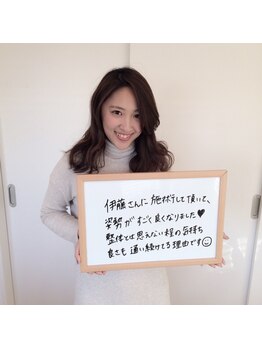 伊藤さんに施術して頂いて、
姿勢がすごく良くなりました♥
整体とは思えない程の気持ち
良さも通い続けてる理由です☺